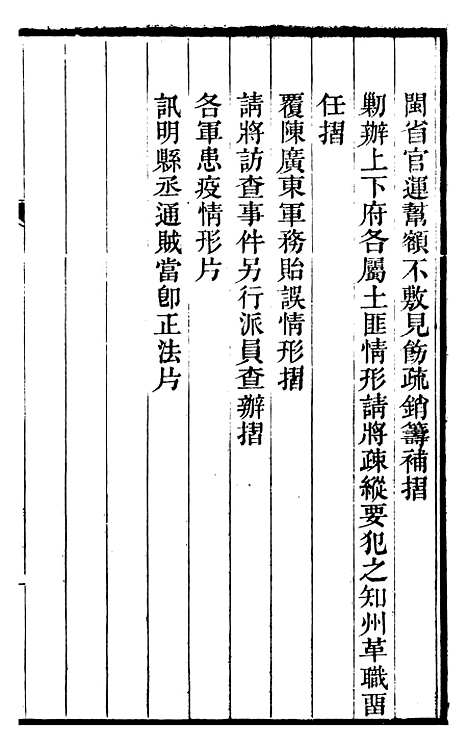 閩省官運幫額不敷見飭疏銷籌補摺
勦辦上下府各屬土匪情形請將疎縱要犯之知州革職畱
任摺
覆陳廣東軍務貽誤情形摺
請將訪查事件另行派員查辦摺
各軍患疫情形片
訊明縣丞通賊當卽正法片